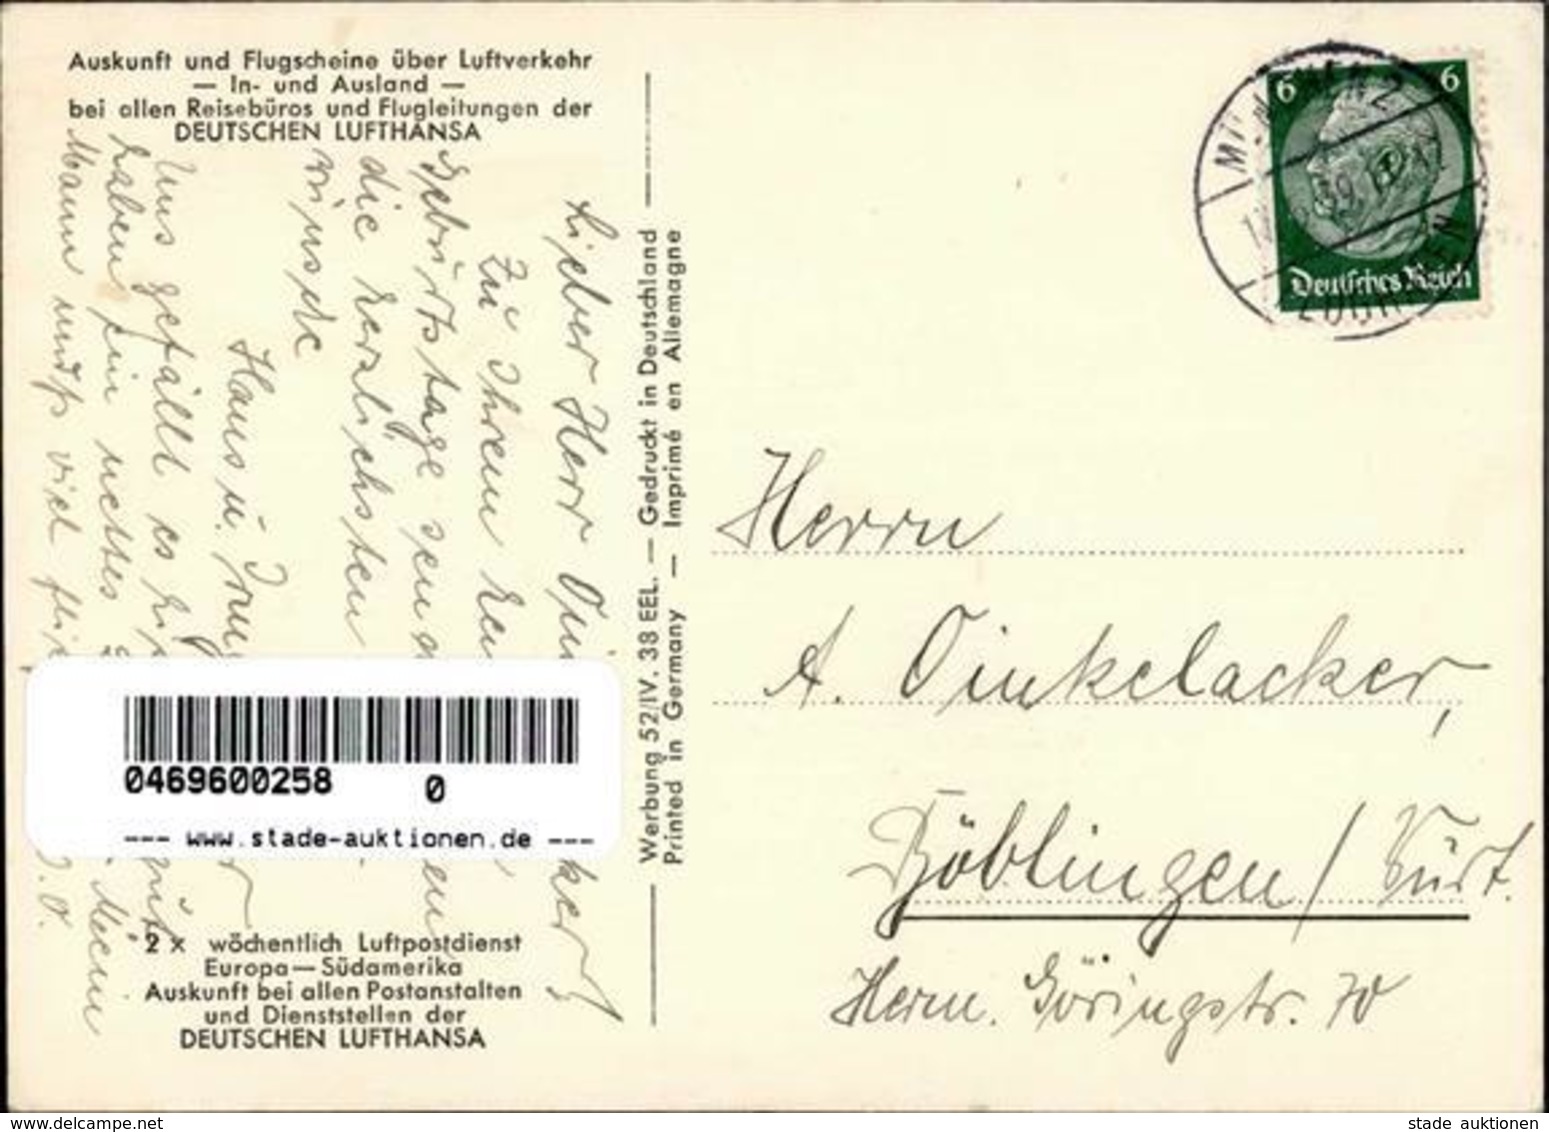 Auskunft und Flugscheine über Luftverkehr
— In- und Ausland —
bei allen Reisebüros und Flugleitungen der
DEUTSCHEN LUFTHANSA
Lieber Herr
Zu Ihrem
Geburtstage senden
die herzlichsten
Wünsche
Hans u.
Uns gefällt es
haben ein nettes
Mann muß viel
2 x wöchentlich Luftpostdienst
Europa — Südamerika
Auskunft bei allen Postanstalten
und Dienststellen der
DEUTSCHEN LUFTHANSA
Werbung 52/IV. 38 EEL. — Gedruckt in Deutschland
Printed in Germany — Imprimé en Allemagne
6 6
Deutsches Reich
Herrn
A. Dinkelacker,
Böblingen / Württ.
Herm. Göringstr. 70
0469600258 0
--- www.stade-auktionen.de ---
www.delcampe.net
stade auktionen